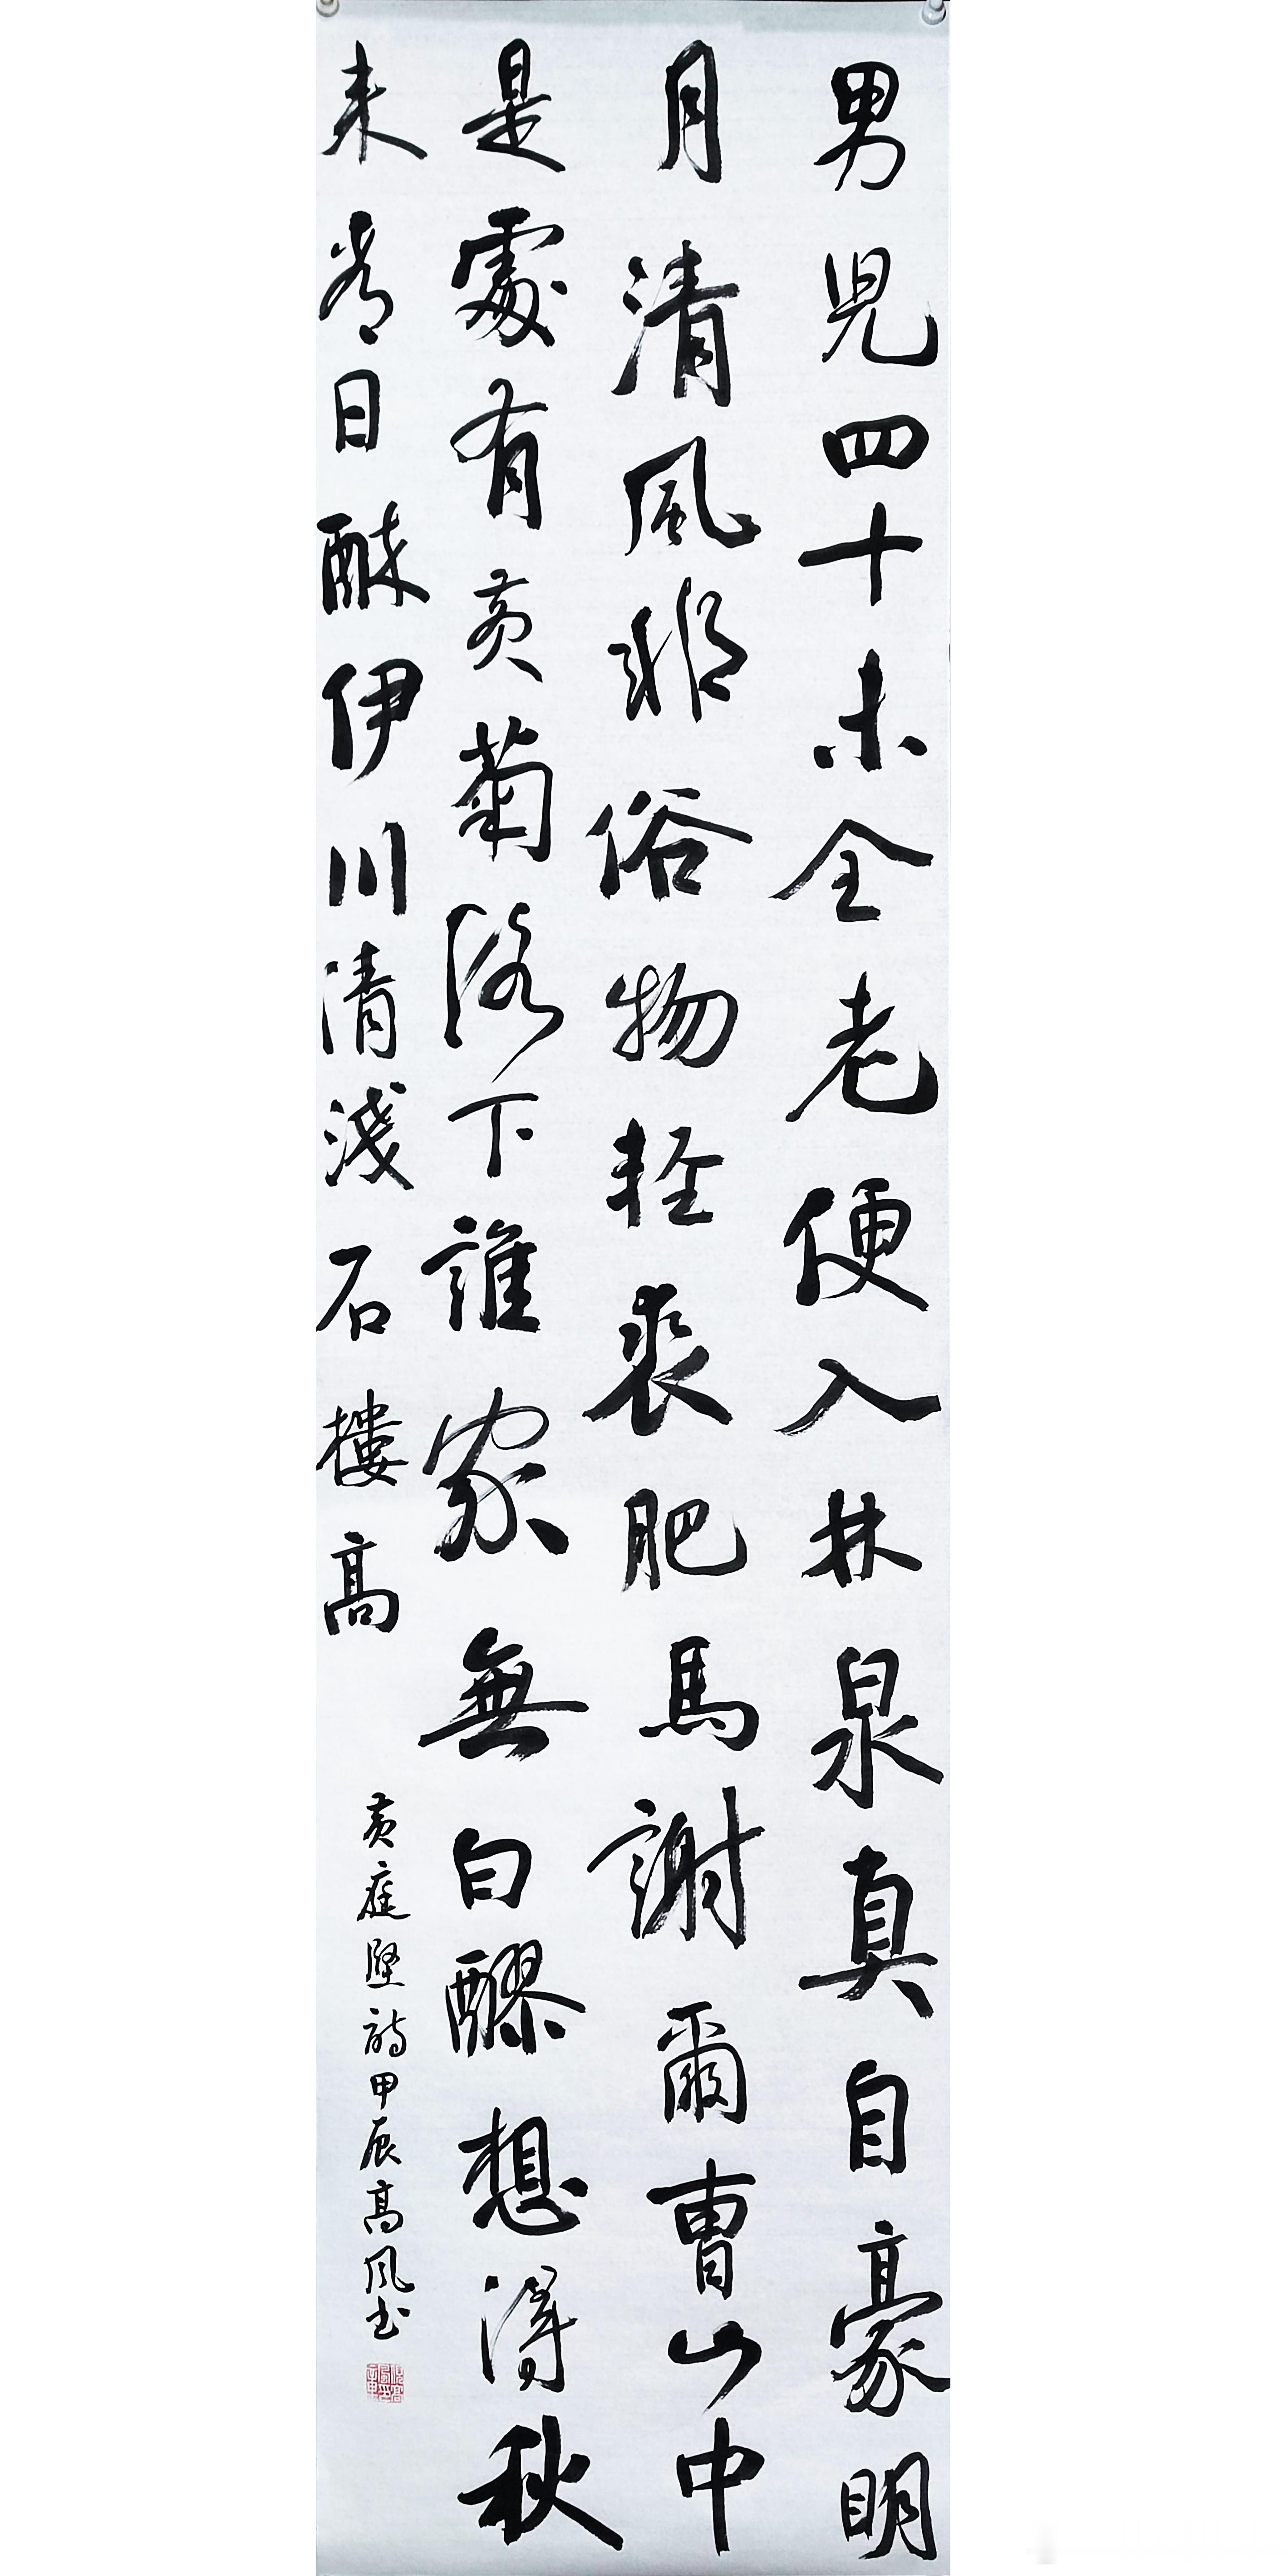 男兒四十未全老便入林泉真自豪明
月清風非俗物輕裘肥馬謝爾曹山中
是處有黃菊洛下誰家無白醪想得秋
來常日醉伊川清淺石樓高
黃庭堅詩甲辰高風書